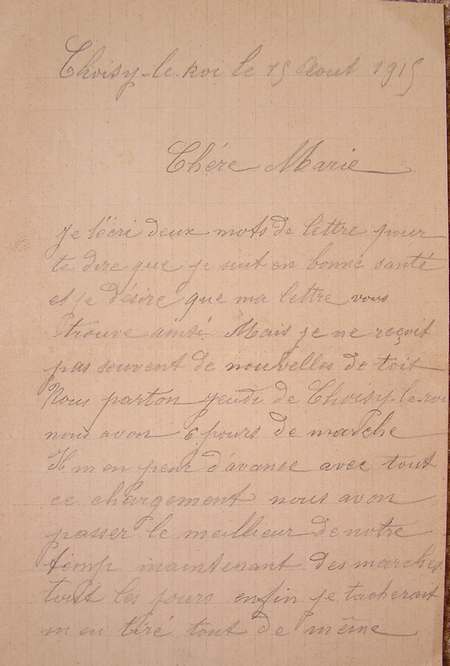 Choisy-le-roi le 15 Aout 1915
Chére Marie
je técri deux mots de lettre pour
te dire que je suit en bonne santé
et je désire que ma lettre vous
trouve ainsi. Mais je ne reçoit
pas souvent de nouvelles de toit
Nous parton jeudi de Choisy-le-roi
nous avon 6 jours de marche
Il m en peur d'avance avec tout
ce chargement nous avon
passer le meilleur de notre
temp maintenant des marches
tout les jours enfin je tacherait
m en tiré tout de même